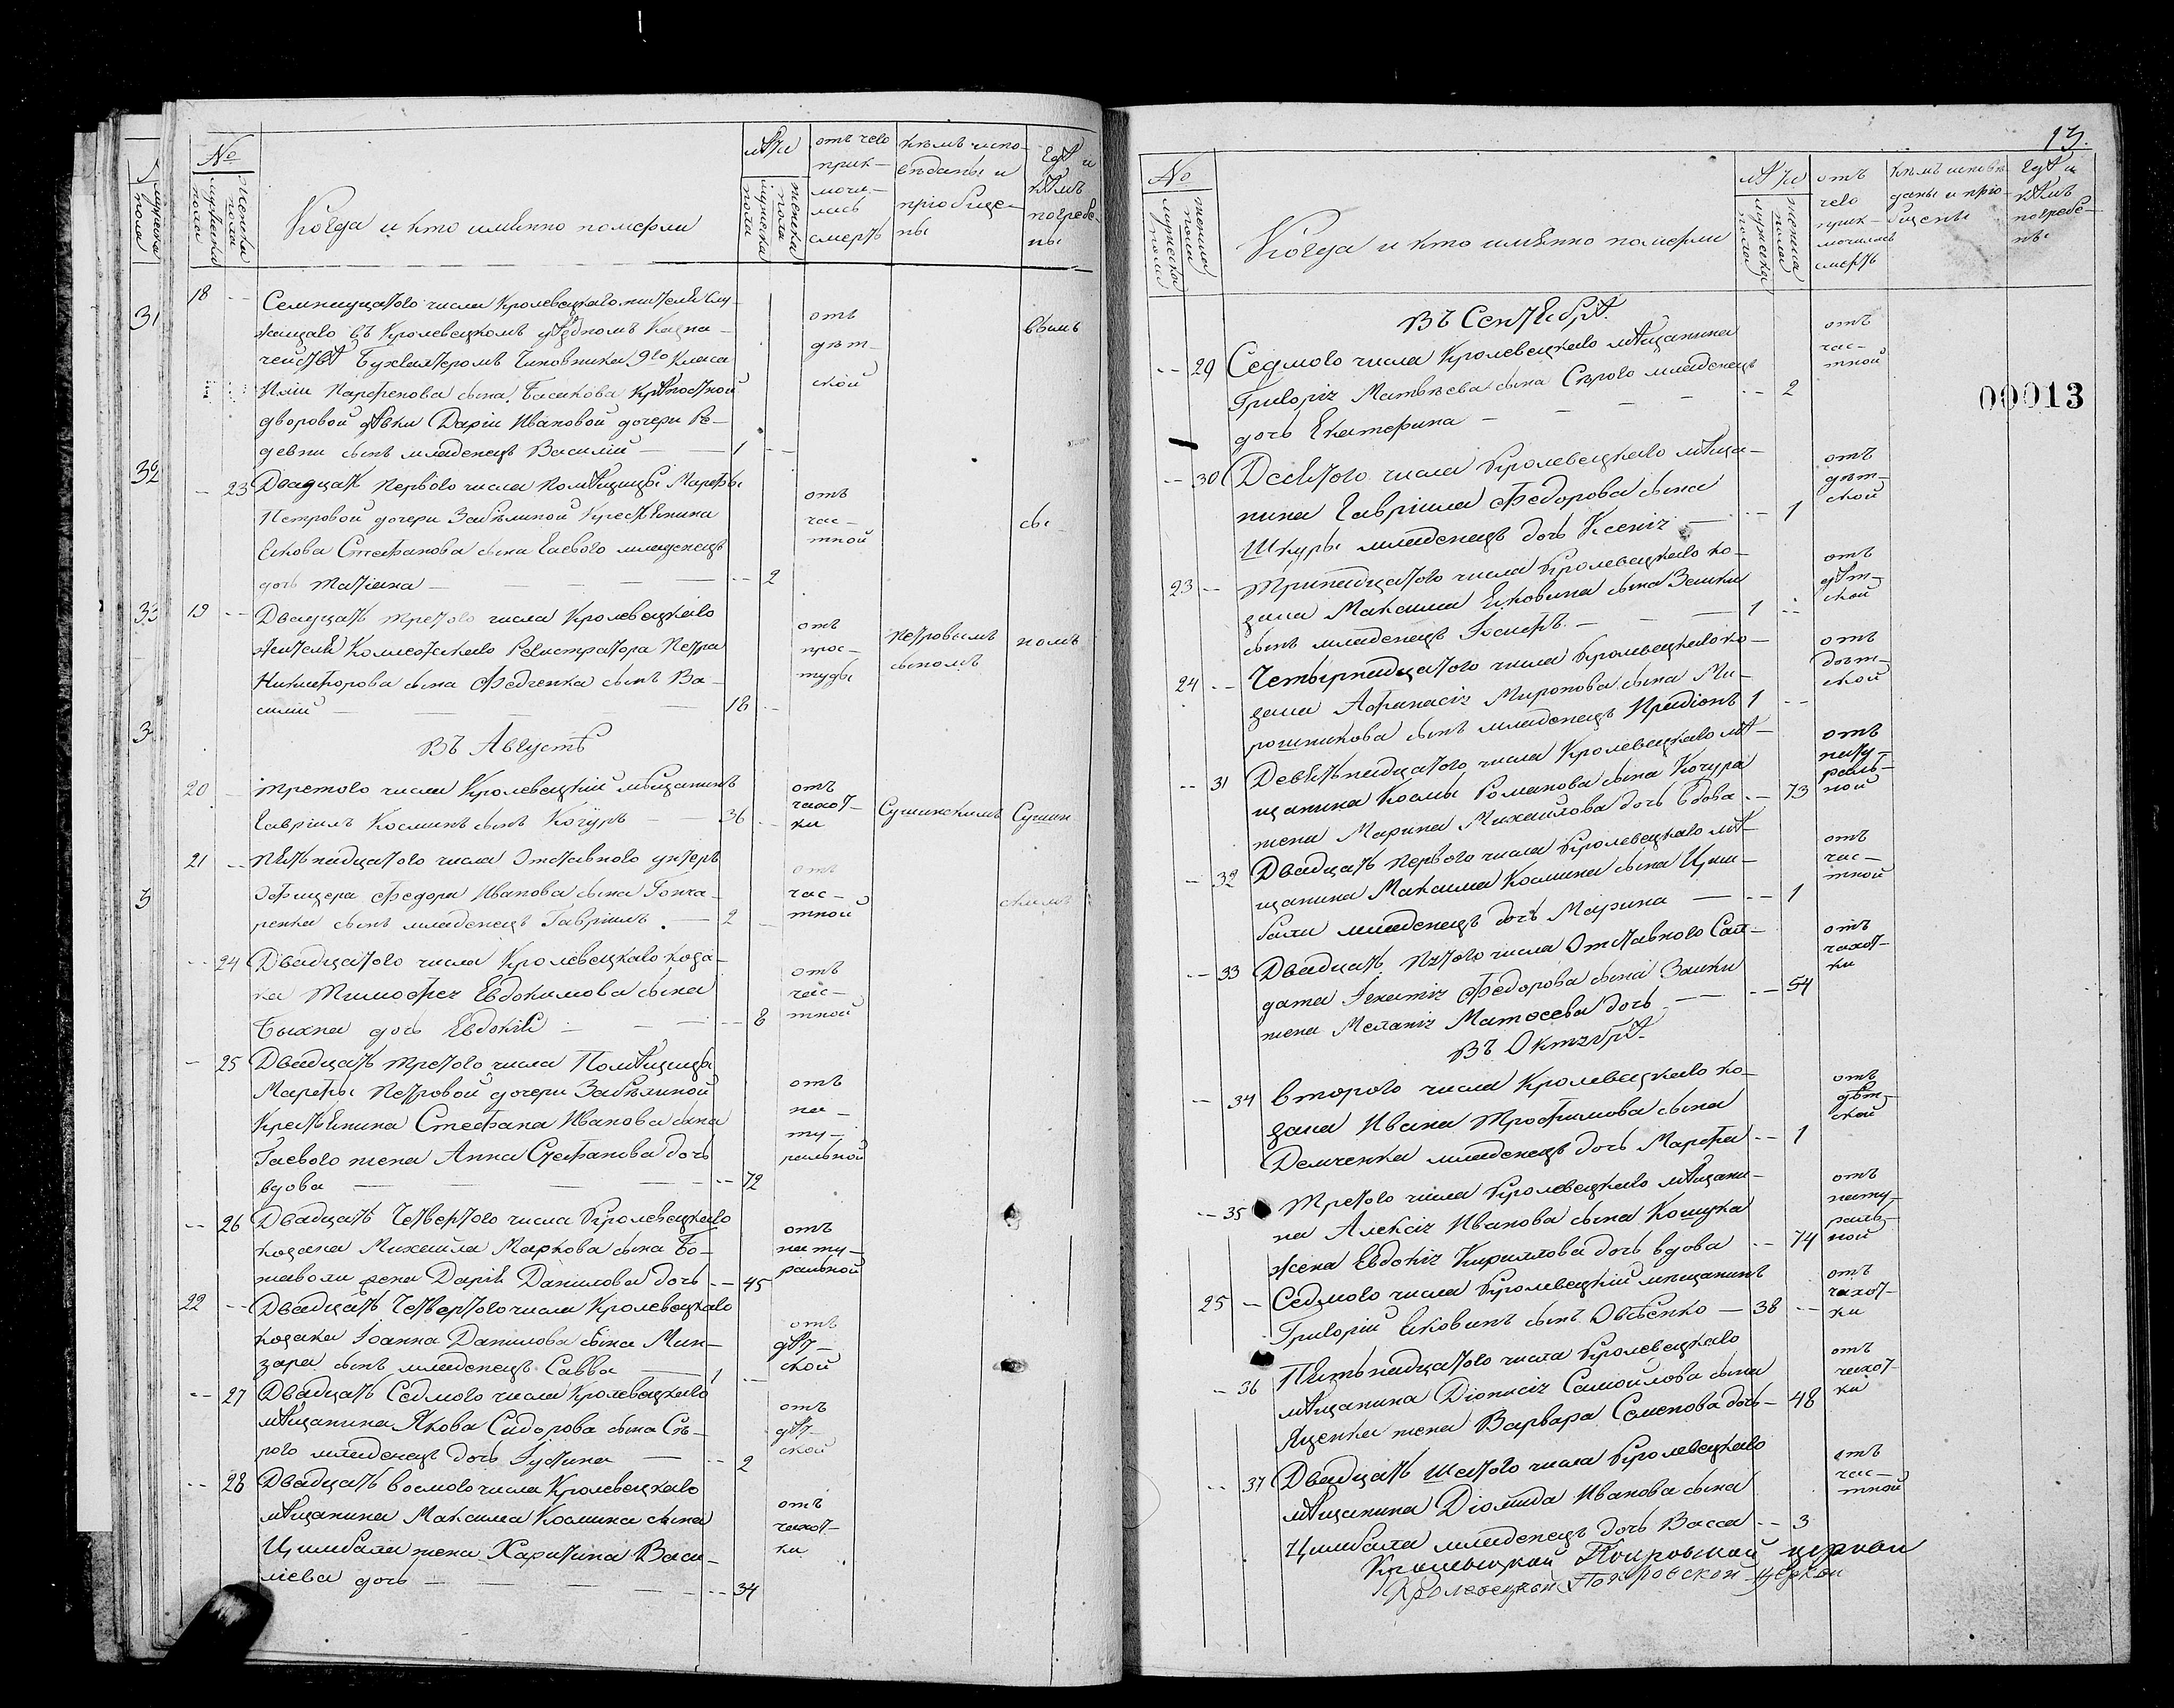 №
мужеска пола
женска пола
Когда и кто именно померли
лѣта
мужеска пола
женска пола
отъ чего приключилась смерть
кѣмъ исповѣданы и пріобщены
гдѣ и кѣмъ погребены
18 --
Семнадцатого числа Кролевецкаго жителя слу-
жащаго въ Кролевецкомъ уѣздномъ Казна-
чействѣ Бухгалтеромъ Чиновника 9го Класа
Иліи Парфенова сына Басикова Крѣпостной
дворовой дѣвки Даріи Ивановой дочери Ре-
девки сынъ младенецъ Василій — 1 --
отъ дѣтской
-- 23 Двадцать первого числа Помѣщицы Марфы
Петровой дочери Забѣлиной Крестьянина
Якова Стефанова сына Гаевого младенецъ
дочь Татіана — -- 2
отъ частной
19 -- Двадцать третого числа Кролевецкаго
жителя Коллежскаго Регистратора Петра
Никифорова сына Федченка сынъ Ва-
силій — 18 --
отъ простуды
Петровымъ сыномъ
Въ Августѣ
20 -- Третого числа Кролевецкій мѣщанинъ
Гавріилъ Косминъ сынъ Кочуръ — 36 --
отъ чахотки
Сушинскимъ
21 -- Пятьнадцатого числа Отставного унтеръ
Офицера Федора Иванова сына Гонча-
ренка сынъ младенецъ Гавріилъ. — 2 --
отъ частной
-- 24 Двадцатого числа Кролевецкаго коза-
ка Тимофея Евдокимова сына
Быхна дочь Евдокія — -- 8
отъ частной
-- 25 Двадцать третого числа Помѣщицы
Марфы Петровой дочери Забѣлиной
Крестьянина Стефана Иванова сына
Гаевого жена Анна Стефанова дочь
вдова — -- 72
отъ натуральной
-- 26 Двадцать четвертого числа Кролевецкаго
козака Михаила Маркова сына Бо-
жаволи жена Дарія Данилова дочь -- 45
отъ натуральной
22 -- Двадцать четвертого числа Кролевецкаго
козака Іоанна Данилова сына Мин-
зара сынъ младенецъ Савва — 1 --
отъ дѣтской
-- 27 Двадцать седмого числа Кролевецкаго
мѣщанина Якова Сидорова сына Сѣ-
рого младенецъ дочь Іустина — -- 2
отъ дѣтской
-- 28 Двадцать восмого числа Кролевецкаго
мѣщанина Максима Космина сына
Цимбала жена Харитина Васи-
лiева дочь — -- 34
отъ чахотки
13.
00013
№
мужеска пола
женска пола
Когда и кто именно померли
лѣта
мужеска пола
женска пола
отъ чего приключилась смерть
кѣмъ исповѣданы и пріобщены
гдѣ и кѣмъ погребены
Въ Сентябрѣ.
-- 29 Седмого числа Кролевецкаго мѣщанина
Григорія Матвѣева сына Сѣрого младенецъ
дочь Екатерина — -- 2
отъ частной
-- 30 Десятого числа Кролевецкаго мѣща-
нина Гавріила Федорова сына
Шкуры младенецъ дочь Ксенія — -- 1
отъ дѣтской
23 -- Тринадцатого числа Кролевецкаго ко-
зака Максима Яковина сына Заики
сынъ младенецъ Іосифъ — 1 --
отъ дѣтской
24 -- Четырнадцатого числа Кролевецкаго ко-
зака Афанасія Миронова сына Ми-
рошникова сынъ младенецъ Иродіонъ 1 --
отъ дѣтской
-- 31 Девятьнадцатого числа Кролевецкаго мѣ-
щанина Космы Романова сына Кочура
жена Марина Михайлова дочь вдова -- 73
отъ натуральной
-- 32 Двадцать первого числа Кролевецкаго мѣ-
щанина Максима Космина сына Цим-
бали младенецъ дочь Марина — -- 1
отъ частной
-- 33 Двадцать пятого числа Отставного Сол-
дата Игнатія Федорова сына Заики
жена Меланія Матфеева дочь — -- 54
отъ чахотки
Въ Октябрѣ.
-- 34 Второго числа Кролевецкаго ко-
зака Ивана Трофимова сына
Демченка младенецъ дочь Марфа -- 1
отъ дѣтской
-- 35 Третого числа Кролевецкаго мѣщани-
на Алексія Иванова сына Кошука
жена Евдокія Кириллова дочь вдова -- 74
отъ натуральной
25 -- Седмого числа Кролевецкій мѣщанинъ
Григорій Яковинъ сынъ Овсѣенко — 38 --
отъ чахотки
-- 36 Пятьнадцатого числа Кролевецкаго
мѣщанина Діонисія Самойлова сына
Яценка жена Варвара Семенова дочь -- 48
отъ чахотки
-- 37 Двадцать шестого числа Кролевецкаго
мѣщанина Діомида Иванова сына
Цимбала младенецъ дочь Васса -- 3
отъ частной
Кролевецкой Покровской церкви
Кролевецкой Покровской церкви